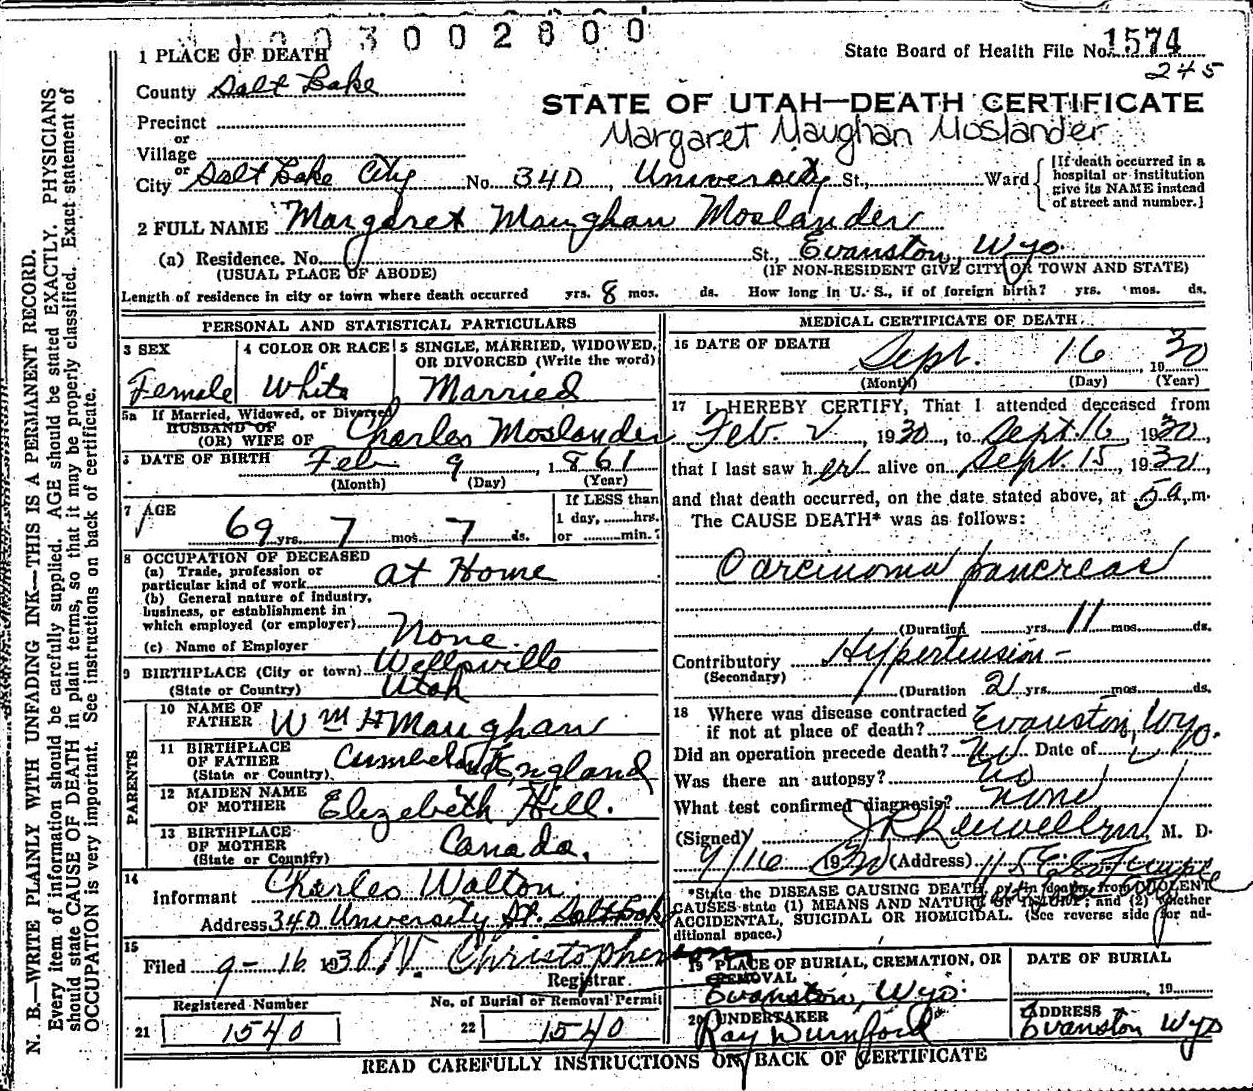 1003002800
State Board of Health File No. 1574
245
1 PLACE OF DEATH
County Salt Lake
STATE OF UTAH—DEATH CERTIFICATE
Margaret Maughan Moslander
Precinct
or
Village
or
City Salt Lake City No. 340, University St., Ward
[If death occurred in a hospital or institution give its NAME instead of street and number.]
2 FULL NAME Margaret Maughan Moslander
(a) Residence. No. St., Evanston, Wyo
(USUAL PLACE OF ABODE) (IF NON-RESIDENT GIVE CITY OR TOWN AND STATE)
Length of residence in city or town where death occurred yrs. 8 mos. ds. How long in U. S., if of foreign birth? yrs. mos. ds.
PERSONAL AND STATISTICAL PARTICULARS
3 SEX
Female
4 COLOR OR RACE
White
5 SINGLE, MARRIED, WIDOWED, OR DIVORCED (Write the word)
Married
5a If Married, Widowed, or Divorced
HUSBAND OF
(OR) WIFE OF Charles Moslander
6 DATE OF BIRTH Feb 9, 1861
(Month) (Day) (Year)
7 AGE
69 yrs. 7 mos. 7 ds.
If LESS than
1 day, hrs.
or min.?
8 OCCUPATION OF DECEASED
(a) Trade, profession or
particular kind of work at Home
(b) General nature of industry,
business, or establishment in
which employed (or employer)
(c) Name of Employer None
9 BIRTHPLACE (City or town) Wellsville
(State or Country) Utah
PARENTS
10 NAME OF
FATHER Wm H Maughan
11 BIRTHPLACE
OF FATHER
(State or Country) England
12 MAIDEN NAME
OF MOTHER Elizabeth Hill.
13 BIRTHPLACE
OF MOTHER
(State or Country) Canada.
14
Informant Charles Walton
Address 340 University St. Salt Lake
15
Filed 9-16 1930 W. Christopherson
Registrar.
Registered Number
21 1540
No. of Burial or Removal Permit
22 1540
MEDICAL CERTIFICATE OF DEATH.
16 DATE OF DEATH
Sept. 16, 1930
(Month) (Day) (Year)
17 I HEREBY CERTIFY, That I attended deceased from
Feb. 2, 1930, to Sept. 16, 1930,
that I last saw her alive on Sept. 15, 1930,
and that death occurred, on the date stated above, at 5 a.m.
The CAUSE DEATH* was as follows:
Carcinoma pancreas
(Duration yrs. 11 mos. ds.
Contributory Hypertension-
(Secondary)
(Duration 2 yrs. mos. ds.
18 Where was disease contracted
if not at place of death? Evanston, Wyo.
Did an operation precede death? No Date of
Was there an autopsy? no
What test confirmed diagnosis? none
(Signed) J R Llewellyn, M. D.
9/16 1930 (Address) 115 E So Temple
*State the DISEASE CAUSING DEATH, or in deaths from VIOLENT
CAUSES state (1) MEANS AND NATURE OF INJURY; and (2) whether
ACCIDENTAL, SUICIDAL OR HOMICIDAL. (See reverse side for ad-
ditional space.)
19 PLACE OF BURIAL, CREMATION, OR
REMOVAL
Evanston, Wyo.
DATE OF BURIAL
19
20 UNDERTAKER
Ray Durnford
ADDRESS
Evanston Wyo
READ CAREFULLY INSTRUCTIONS ON BACK OF CERTIFICATE
N. B.—WRITE PLAINLY WITH UNFADING INK—THIS IS A PERMANENT RECORD.
Every item of information should be carefully supplied. AGE should be stated EXACTLY. PHYSICIANS
should state CAUSE OF DEATH in plain terms, so that it may be properly classified. Exact statement of
OCCUPATION is very important. See instructions on back of certificate.